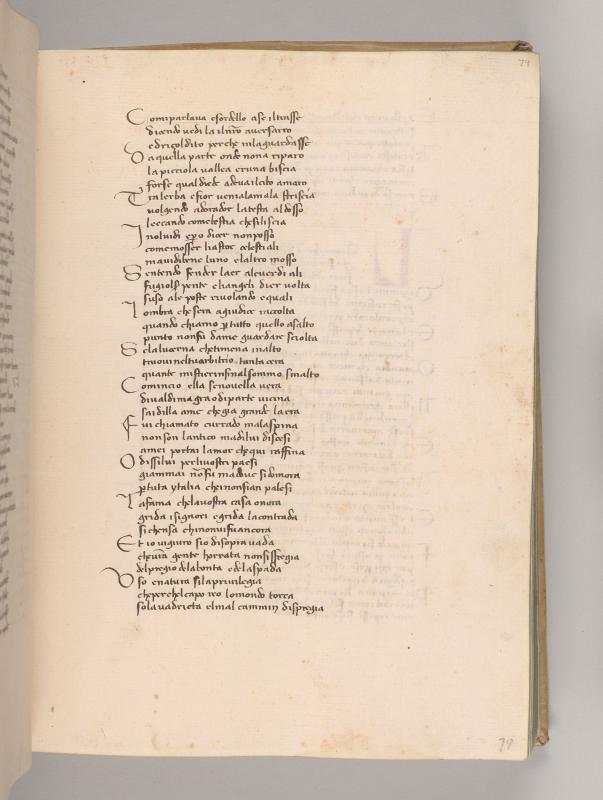 79
Comiparlaua esordello ase iltrasse
dicendo vedi la ilnro aversaro
edrizoldito perche inlaguardasse
Da quella parte onde nona riparo
la picciola vallea eruna biscia
forse qual diede adeua ilcibo amaro
Tra lerba efior venia lamala striscia
volgendo adorador latesta aldosso
leccando comebestia chesiliscia
Inoluidi epo dicer nonposso
comemosser liastor celestiali
mauidibene luno elaltro mosso
Sentendo fender laer aleverdi ali
fugiol spente eliangeli dier volta
suso ale poste riuolando equali
Lombra chesera agiudice racolta
quando chiamo ptutto quello asalto
punto nonfu dame guardare sciolta
Se lalucerna chetimena inalto
truoui neltuoarbitrio tanta cera
quante mistieri infinalsommo smalto
Comincio ella senouella vera
diualdimagra odiparte vicina
sai dilla ame chegia grande laera
Fui chiamato currado malaspina
non son lantico madilui discesi
amei portai lamor chequi raffina
O dissilui perliuostri paesi
giammai nofu maduue sidimora
ptutta ytalia cheinonsian palesi
Lafama chelauostra casa onora
grida isignori egrida lacontrada
sichensa chinonuifu ancora
Et io uigiuro sio disopra vada
cheura gente honrata nonsisfregia
delpregio delabonta edelaspada
Uso enatura silapriuilegia
cheperchelcapo reo lomondo torca
sola vadricta elmal cammin dispregia
79